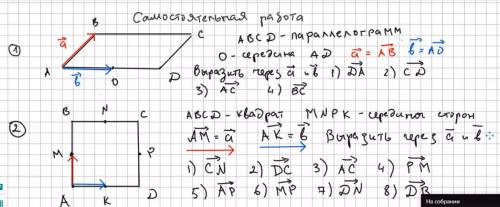 Самостоятельная работа
① B C a⃗ A b⃗ O D
ABCD - параллелограмм
O - середина AD a⃗ = AB⃗ b⃗ = AO⃗
Выразить через a⃗ и b⃗ 1) DA⃗ 2) CD⃗
3) AC⃗ 4) BC⃗
② B N C M P A K D
ABCD - квадрат MNPK - середины сторон
AM⃗ = a⃗ AK⃗ = b⃗ Выразить через a⃗ и b⃗
1) CN⃗ 2) DC⃗ 3) AC⃗ 4) PM⃗
5) AP⃗ 6) MP⃗ 7) DN⃗ 8) DB⃗
На собрании